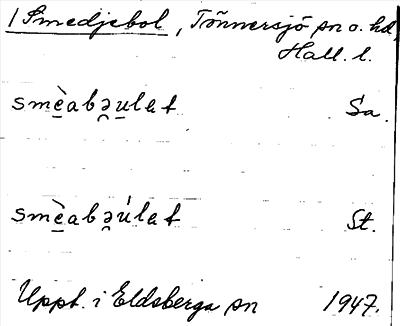 /Smedjebol, Tönnersjö sn o. hd,
Hall. l.
smè̠abə̯u̠lat Sa.
smè̠abə̯ú̠lat St.
Uppt. i Eldsberga sn 1947.